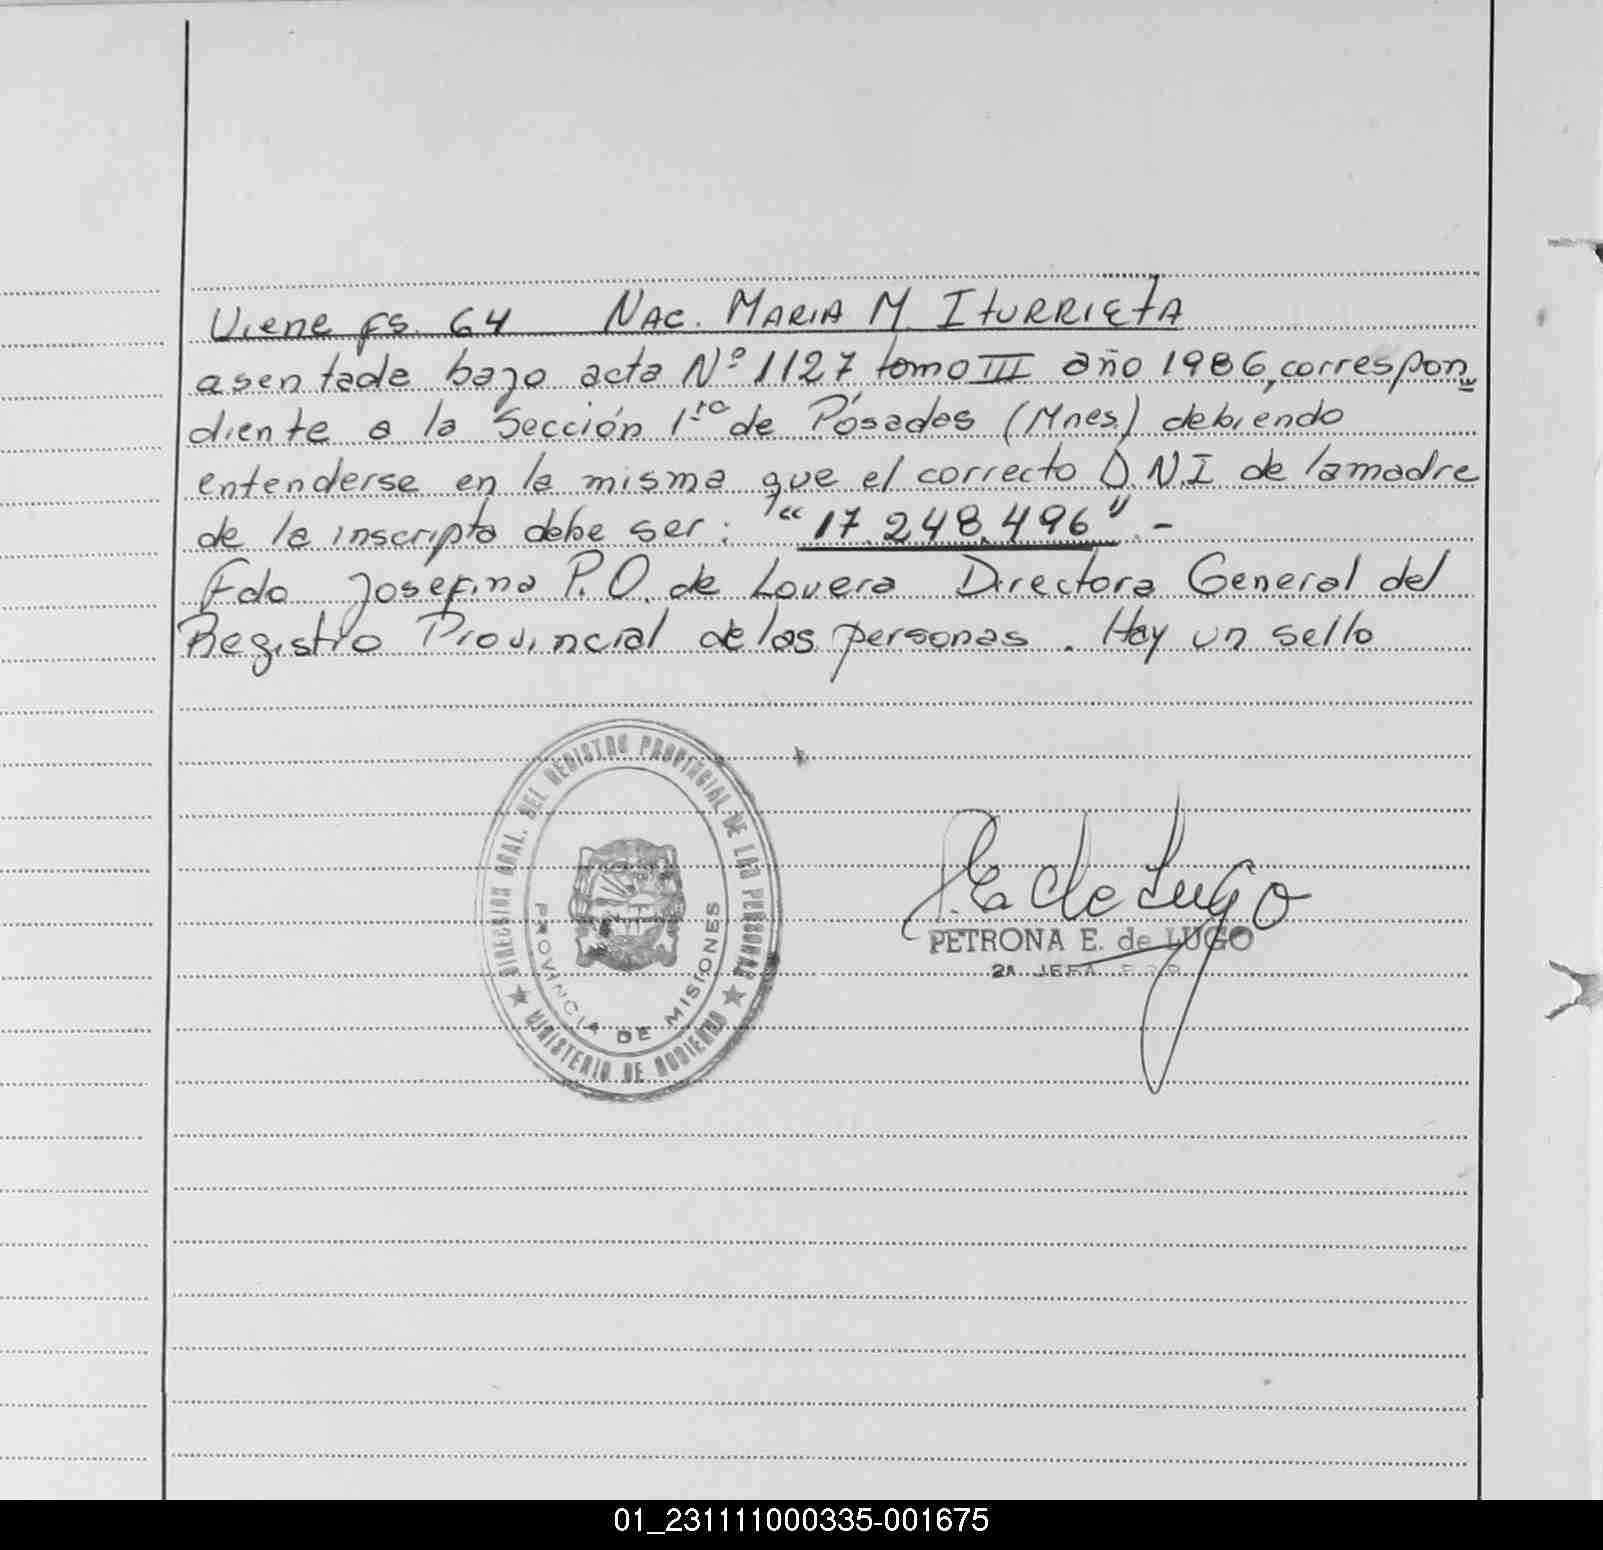 Viene fs. 64 NAC. MARIA M. ITURRIETA
asentada bajo acta Nº 1127 tomo III año 1986, correspon
diente a la Sección 1ra de Pósadas (Mnes.) debiendo
entenderse en la misma que el correcto D.N.I de la madre
de la inscripta debe ser: "17.248.496".-
Fdo Josefina P.O. de Lovera Directora General del
Registro Provincial de las personas. Hay un sello
DIRECCION GRAL. DEL REGISTRO PROVINCIAL DE LAS PERSONAS
PROVINCIA DE MISIONES
MINISTERIO DE GOBIERNO
P.E de Lugo
PETRONA E. de LUGO
2ª JEFA
01_231111000335-001675